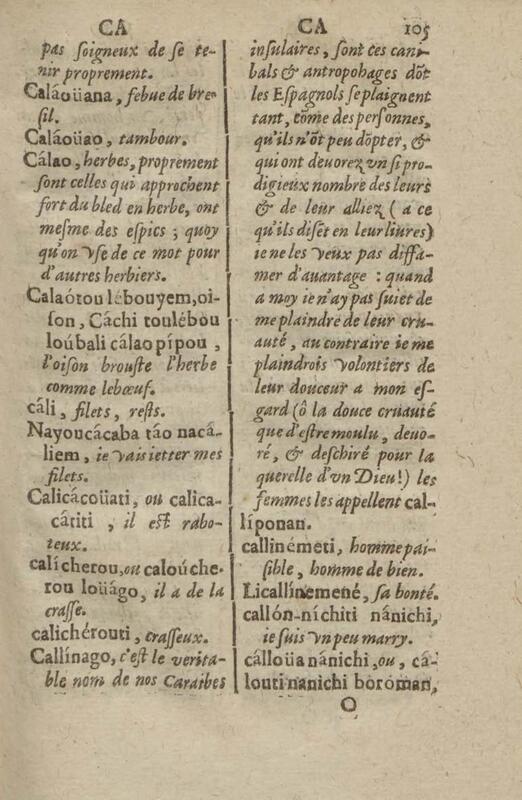 CA
pas soigneux de se te-
nir proprement.
Caláoüana, febue de bre-
sil.
Caláoüao, tambour.
Cálao, herbes, proprement
sont celles qui approchent
fort du bled en herbe, ont
mesme des espics ; quoy
qu'on vse de ce mot pour
d'autres herbiers.
Calaótou lébouyem, oi-
son, Cáchi toulébou
loúbali cálao pípou,
l'oison brouste l'herbe
comme lebœuf.
cáli, filets, rests.
Nayoucácaba táo nacá-
liem, ie vais ietter mes
filets.
Calicácoüati, ou calica-
cátiti, il est rabo-
teux.
calícherou, ou caloúche-
rou loüágo, il a de la
crasse.
calichérouti, crasseux.
Callínago, c'est le verita-
ble nom de nos Caraibes
CA 105
insulaires, sont ces cani-
bals & antropohages dōt
les Espagnols se plaignent
tant, cōme des personnes,
qu'ils n'ōt peu dōpter, &
qui ont deuorez vn si pro-
digieux nombre des leurs
& de leur alliez (a ce
qu'ils disēt en leur liures)
ie ne les veux pas diffa-
mer d'auantage : quand
a moy ie n'ay pas suiet de
me plaindre de leur cru-
auté, au contraire ie me
plaindrois volontiers de
leur douceur a mon es-
gard (ô la douce cruauté
que d'estre moulu, deuo-
ré, & deschiré pour la
querelle d'vn Dieu!) les
femmes les appellent cal-
líponan.
callinémeti, homme pai-
sible, homme de bien.
Licallínemené, sa bonté.
callón-níchiti nánichi,
ie suis vn peu marry.
cálloüa nánichi, ou, cá-
louti nanichi boróman,
O